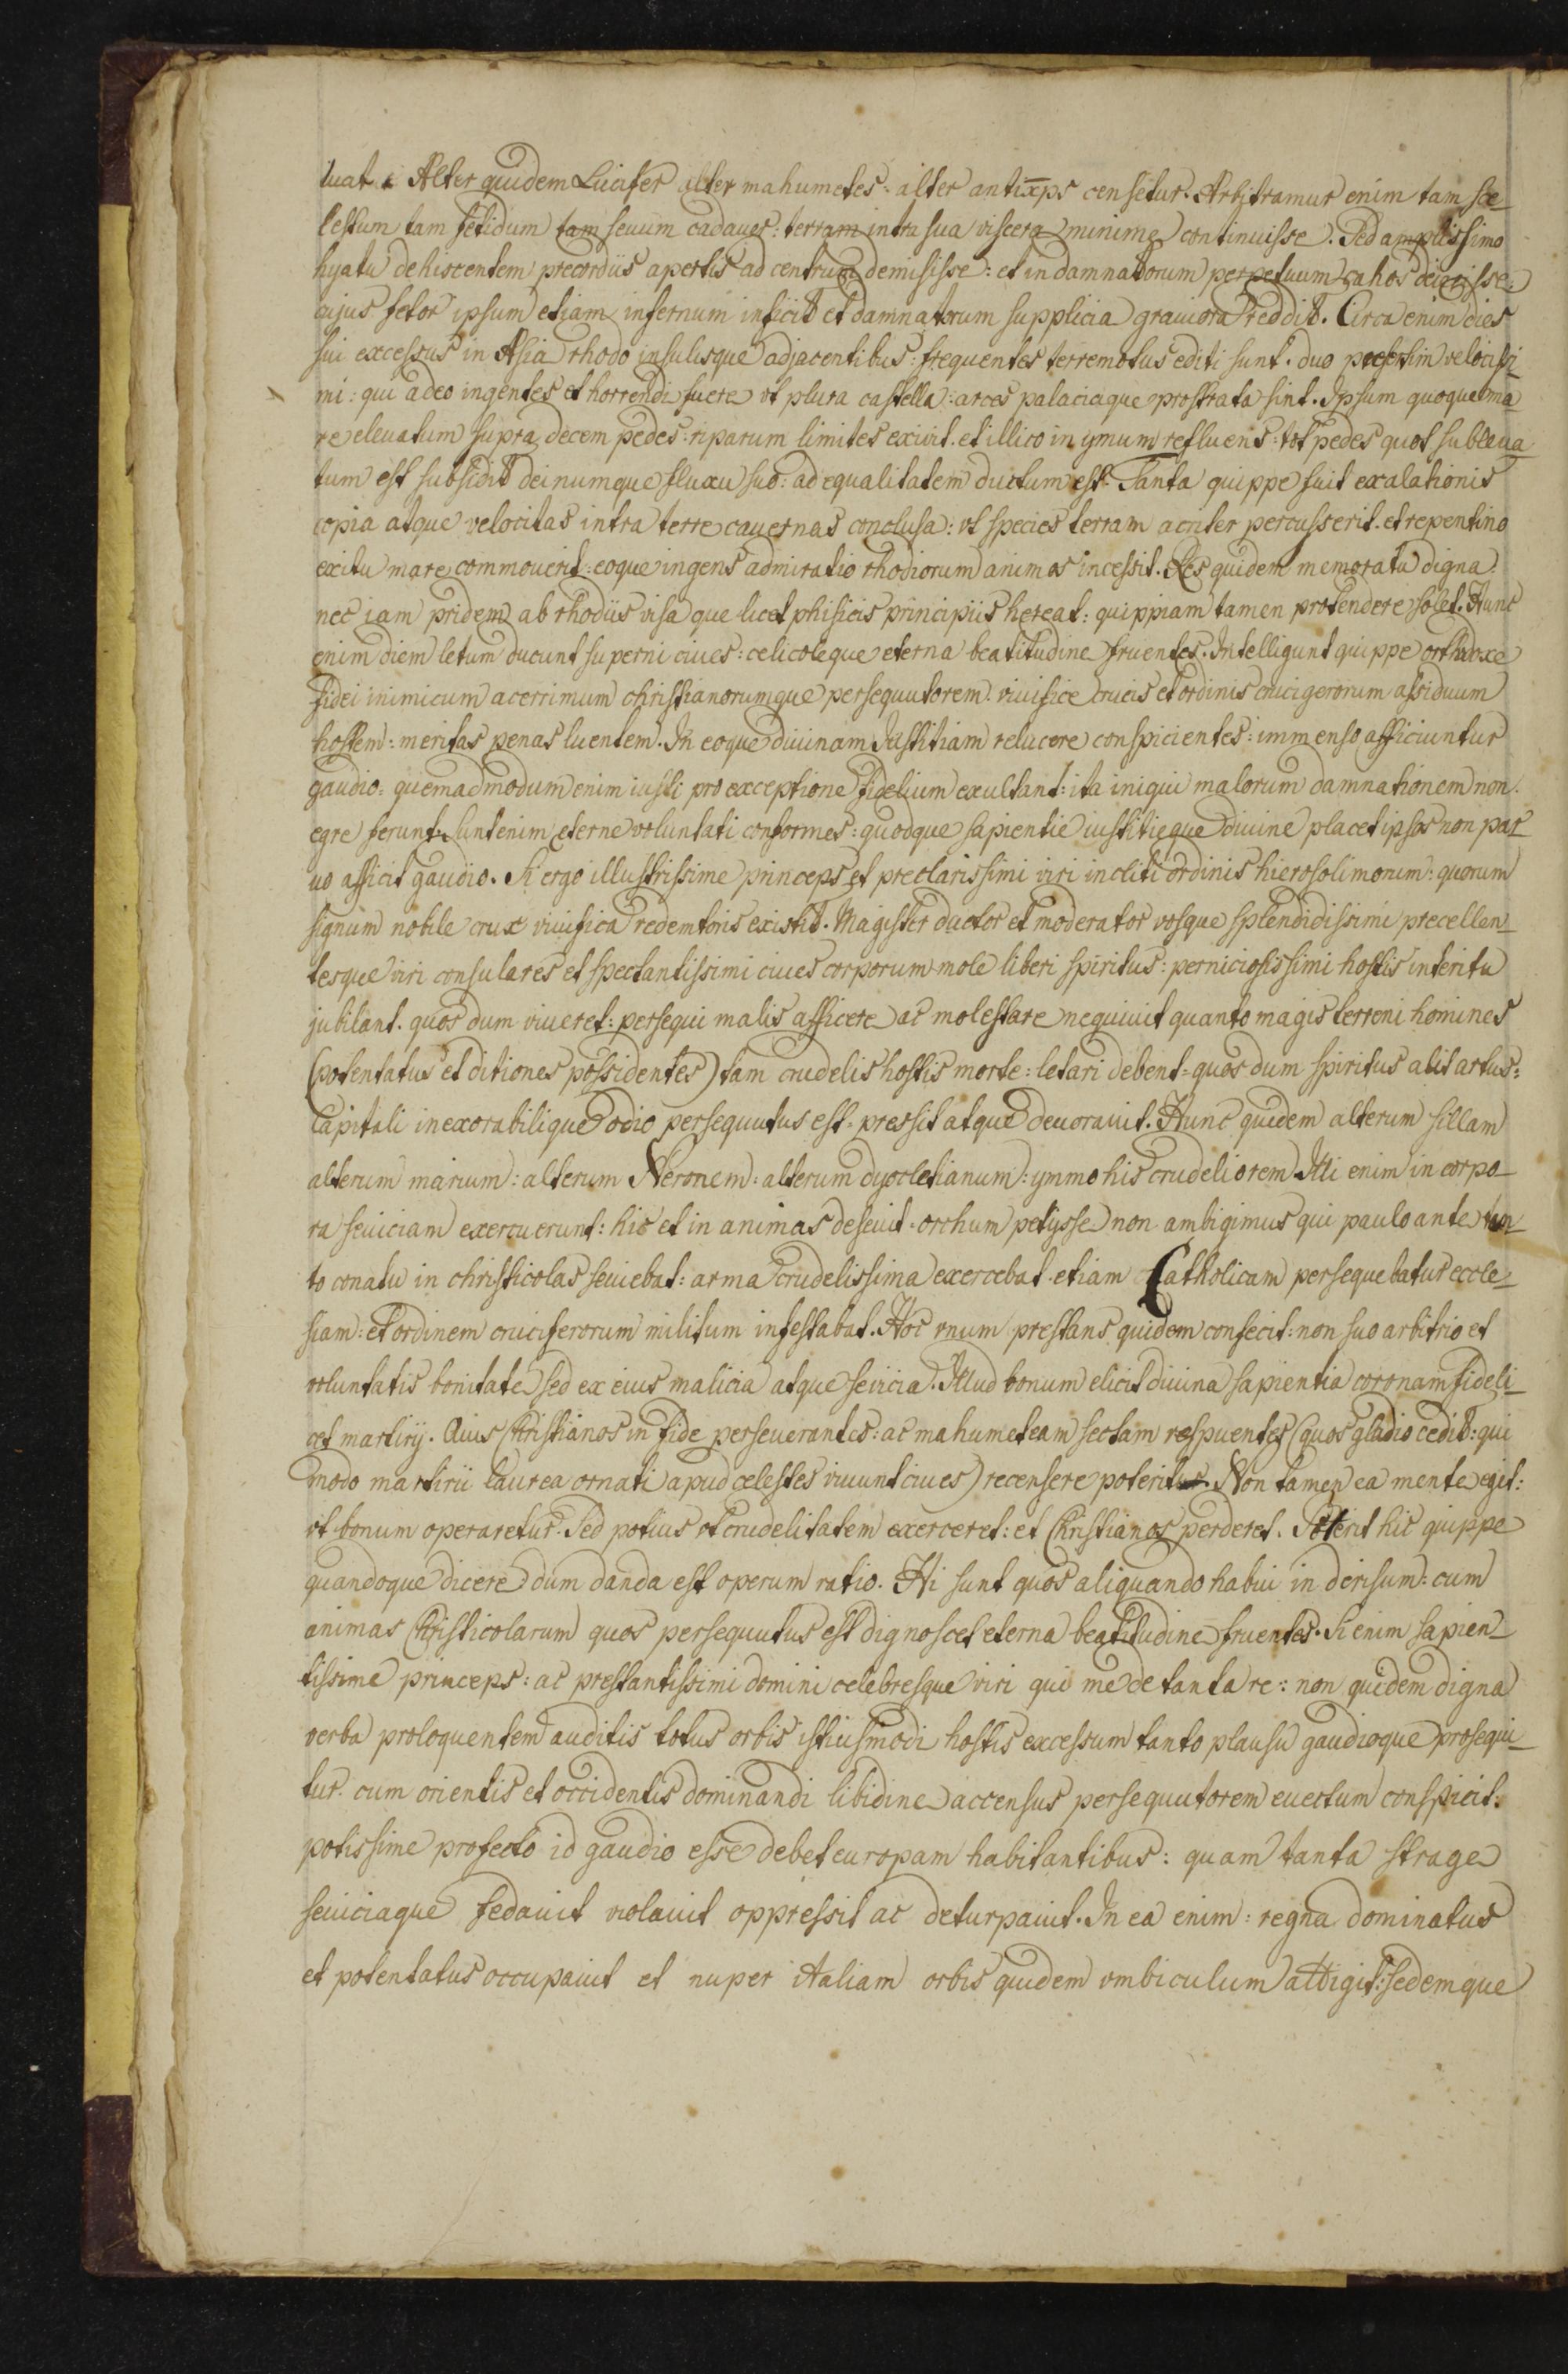 tuat. Alter quidem Lucifer alter mahumetes: alter antixp̄s censetur. Arbitramur enim tam sce-
lestum tam fetidum tam sevum cadauer: terram intra sua viscera minime continuisse. Sed amplissimo
hyatu dehiscentem precordiis apertis ad centrum demisisse: et in damnatorum perpetuum cahos deiecisse:
cujus fetor ipsum etiam infernum inficit et damnatorum supplicia grauiora reddit. Circa enim dies
sui excessus in Asia rhodo insulisque adjacentibus: frequentes terremotus editi sunt. duo presertim velocissi-
mi: qui adeo ingentes et horrendi fuere vt plura castella: arces palaciaque prostrata sint. Ipsum quoque ma-
re eleuatum supra decem pedes: riparum limites exivit. et illico in ymum refluens: tot pedes quot subleua-
tum est subsidit deinumque fluxu suo: ad equalitatem ductum est. Tanta quippe fuit exalationis
copia atque velocitas intra terre cauernas conclusa: vt species terram acriter percusserit. et repentino
exitu mare commouerit: eoque ingens admiratio rhodiorum animos incessit. Res quidem memoratu digna.
nec iam pridem ab rhodiis visa que licet phisicis principiis hereat: quippiam tamen protendere solet. Hunc
enim diem letum ducunt superni ciues: celicoleque eterna beatitudine fruentes. Intelligunt quippe orthodoxe
fidei inimicum acerrimum christianorumque persequutorem. viuifice crucis et ordinis crucigerorum assiduum
hostem: meritas penas luentem. In eoque diuinam Justitiam relucere conspicientes: immenso afficiuntur
gaudio: quemadmodum enim iusti pro exceptione fidelium exultant: ita iniqui malorum damnationem non
egre ferunt. Sunt enim eterne voluntati conformes: quodque sapientie iustitieque diuine placet ipsos non par-
uo afficit gaudio. Si ergo illustrissime princeps et preclarissimi viri incliti ordinis hierosolimorum: quorum
signum nobile crux viuifica redemtoris existit. Magister ductor et moderator vosque splendidissimi precellen-
tesque viri consulares et spectantissimi ciues corporum mole liberi spiritus: perniciosissimi hostis interitu
jubilant. quos dum viueret: persequi malis afficere ac molestare nequiuit quanto magis terreni homines
(potentatus et ditiones possidentes) tam crudelis hostis morte: letari debent: quos dum spiritus alit artus:
Capitali inexorabilique odio persequutus est: pressit atque deuorauit. Hunc quidem alterum sillam
alterum marium: alterum Neronem: alterum dyocletianum: ymmo his crudeliorem. Illi enim in corpo-
ra seuiciam exercuerunt: hic et in animas deseuit. orchum petysse non ambigimus qui paulo ante tan-
to conatu in christicolas seuiebat: arma crudelissima exercebat etiam Catholicam persequebatur eccle-
siam: et ordinem cruciferorum militum infestabat. Hoc vnum prestans quidem confecit: non suo arbitrio et
voluntatis bonitate sed ex eius malicia atque seuicia. Illud bonum elicit diuina sapientia coronam fideli-
cet martirij. Quis Christianos in fide perseuerantes: ac mahumeteam sectam respuentes (quos gladio cedit: qui
modo martirii laurea ornati apud celestes viuunt ciues) recensere poterit. Non tamen ea mente egit:
vt bonum operaretur. Sed potius vt crudelitatem exerceret: et Christianos perderet. Poterit hic quippe
quandoque dicere dum danda est operum ratio. Hi sunt quos aliquando habui in derisum: cum
animas Christicolarum quos persequutus est dignoscet eterna beatitudine fruentes. Si enim sapien-
tissime princeps: ac prestantissimi domini celebresque viri qui me de tanta re: non quidem digna
verba proloquentem auditis totus orbis istiusmodi hostis excessum tanto plausu gaudioque prosequi-
tur. cum orientis et occidentis dominandi libidine accensus persequutorem euectum conspicit.
potissime profecto id gaudio esse debet europam habitantibus: quam tanta strage
seuiciaque fedauit violauit oppressit ac deturpauit. In ea enim: regna dominatus
et potentatus occupauit et nuper italiam orbis quidem vmbiculum attigit: sedemque